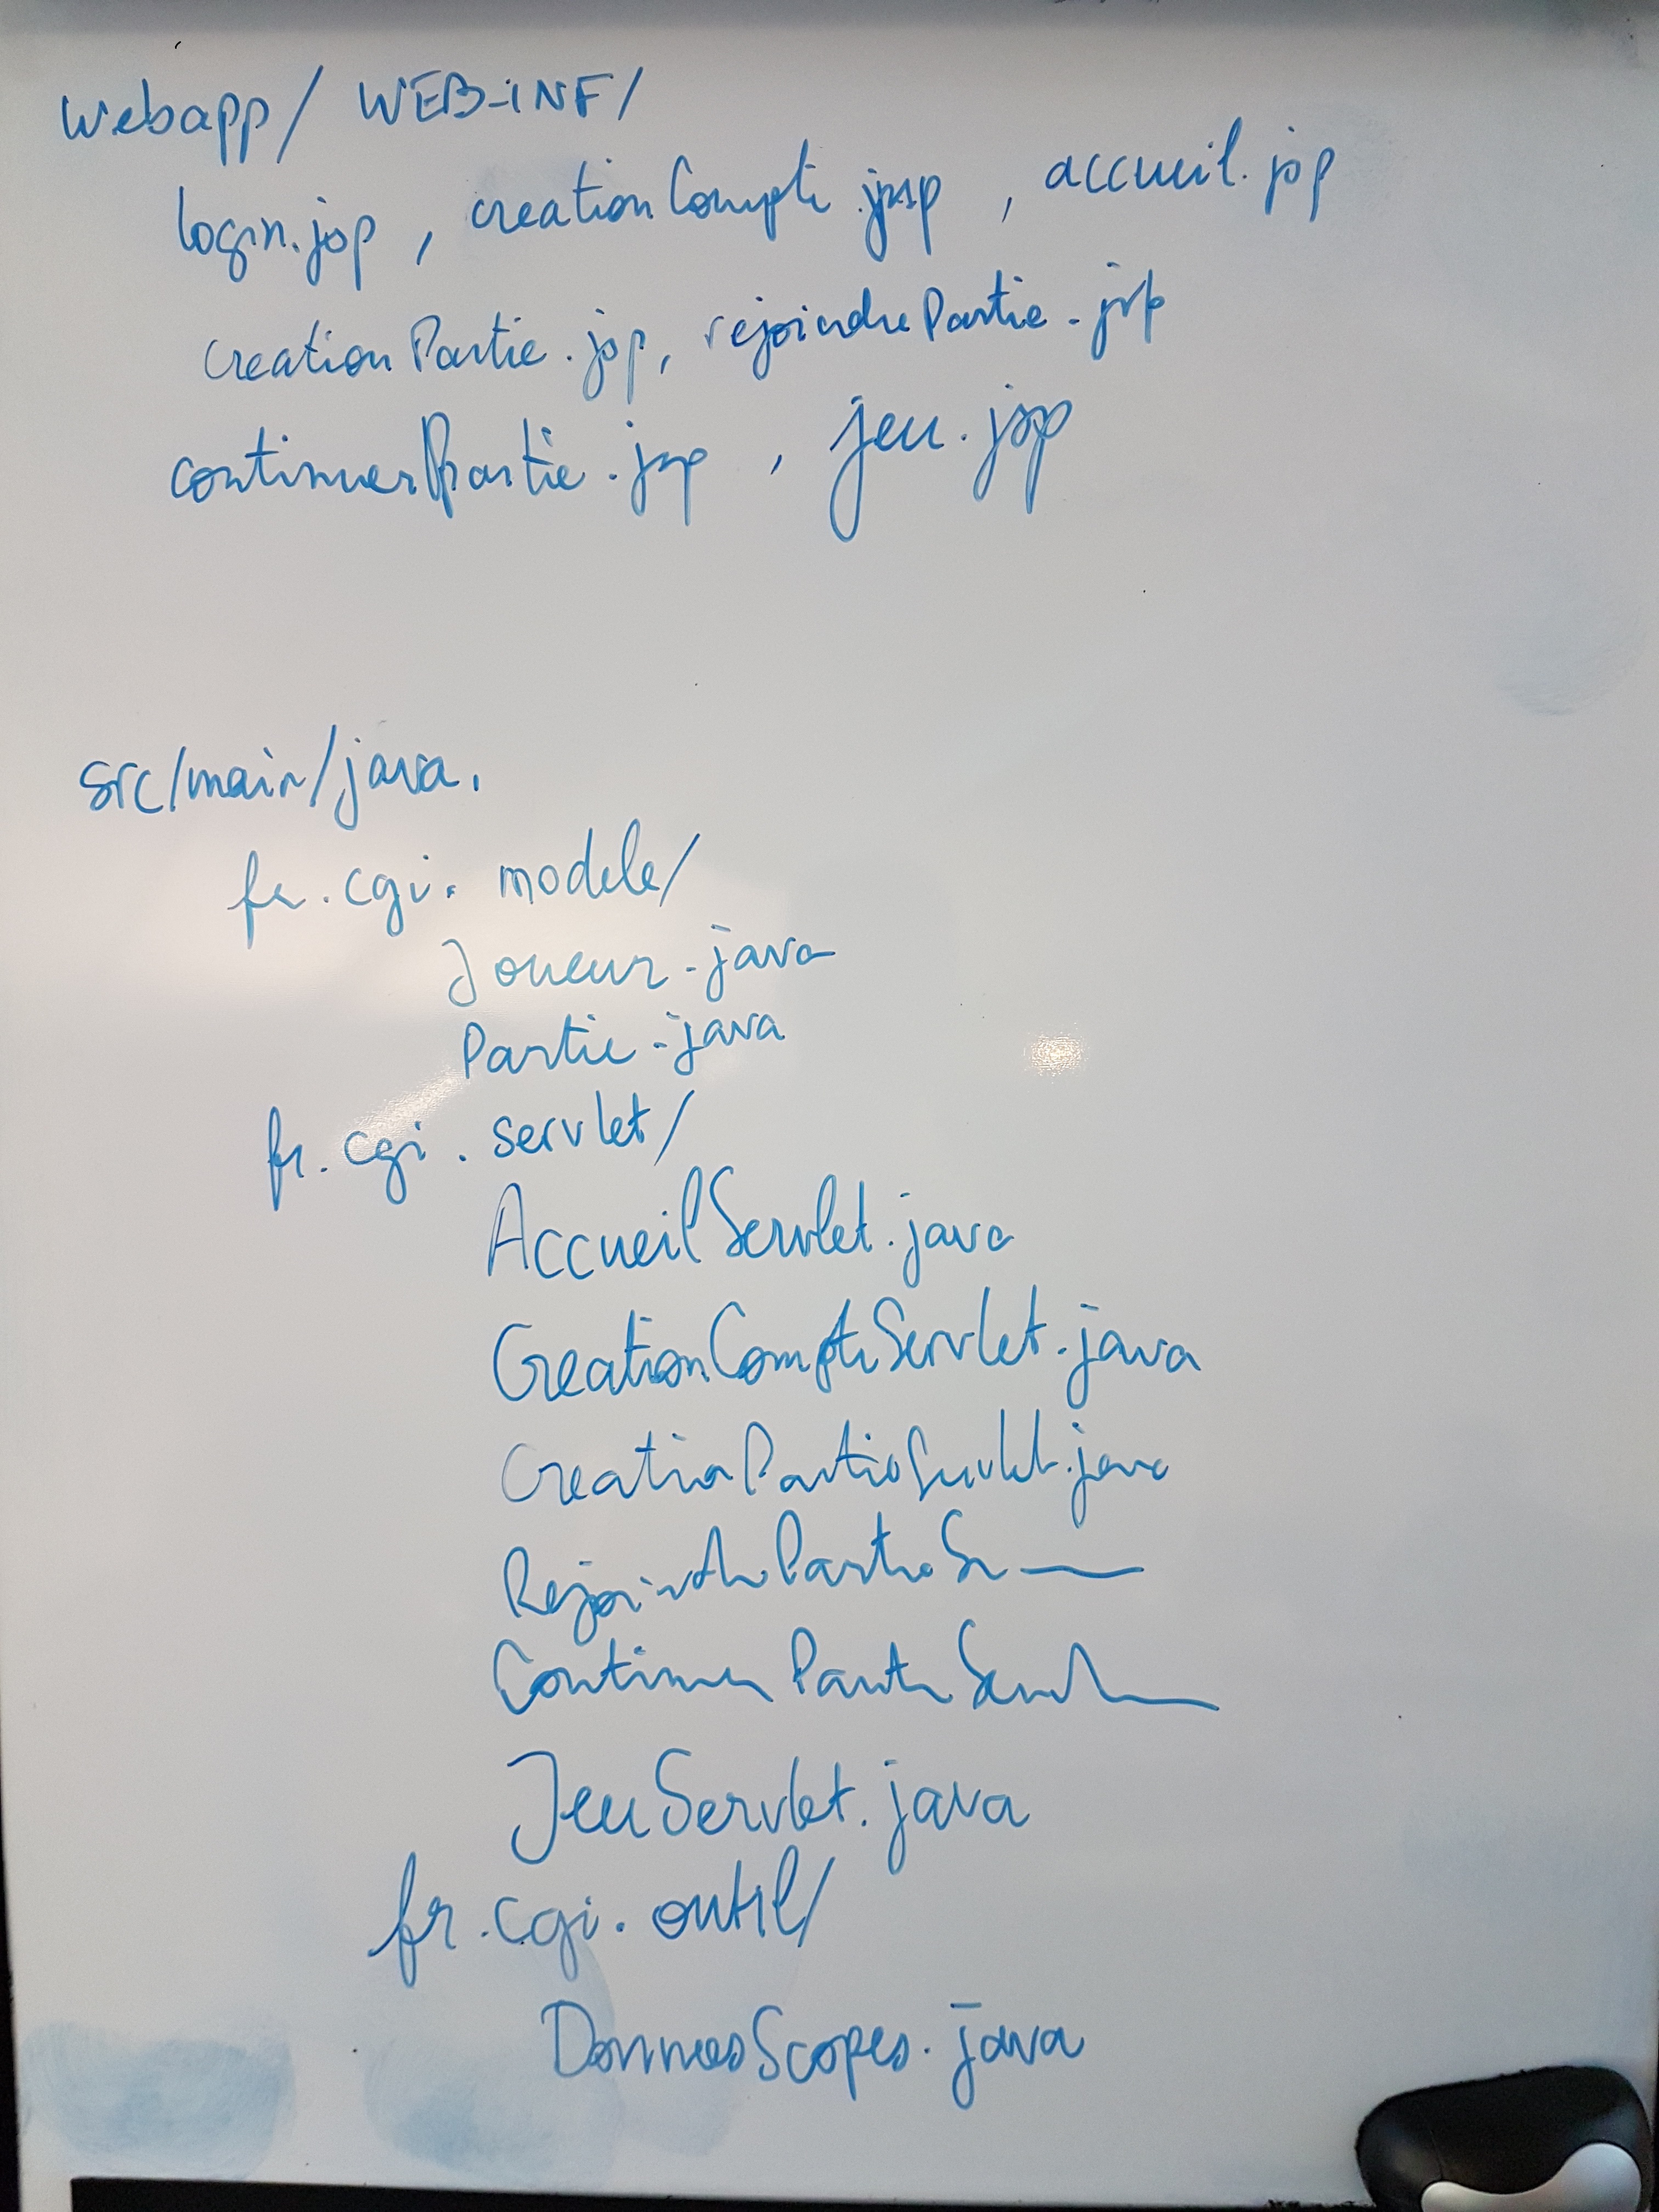 webapp/ WEB-INF/
login.jsp , creationCompte.jsp , accueil.jsp
creationPartie.jsp, rejoindrePartie.jsp
continuerPartie.jsp , jeu.jsp
src/main/java.
fr.cgi. modele/
Joueur.java
Partie.java
fr.cgi. servlet/
AccueilServlet.java
CreationCompteServlet.java
CreationPartieServlet.java
RejoindrePartieSe
ContinuerPartieServl
JeuServlet.java
fr.cgi. outil/
DonneesScopes.java